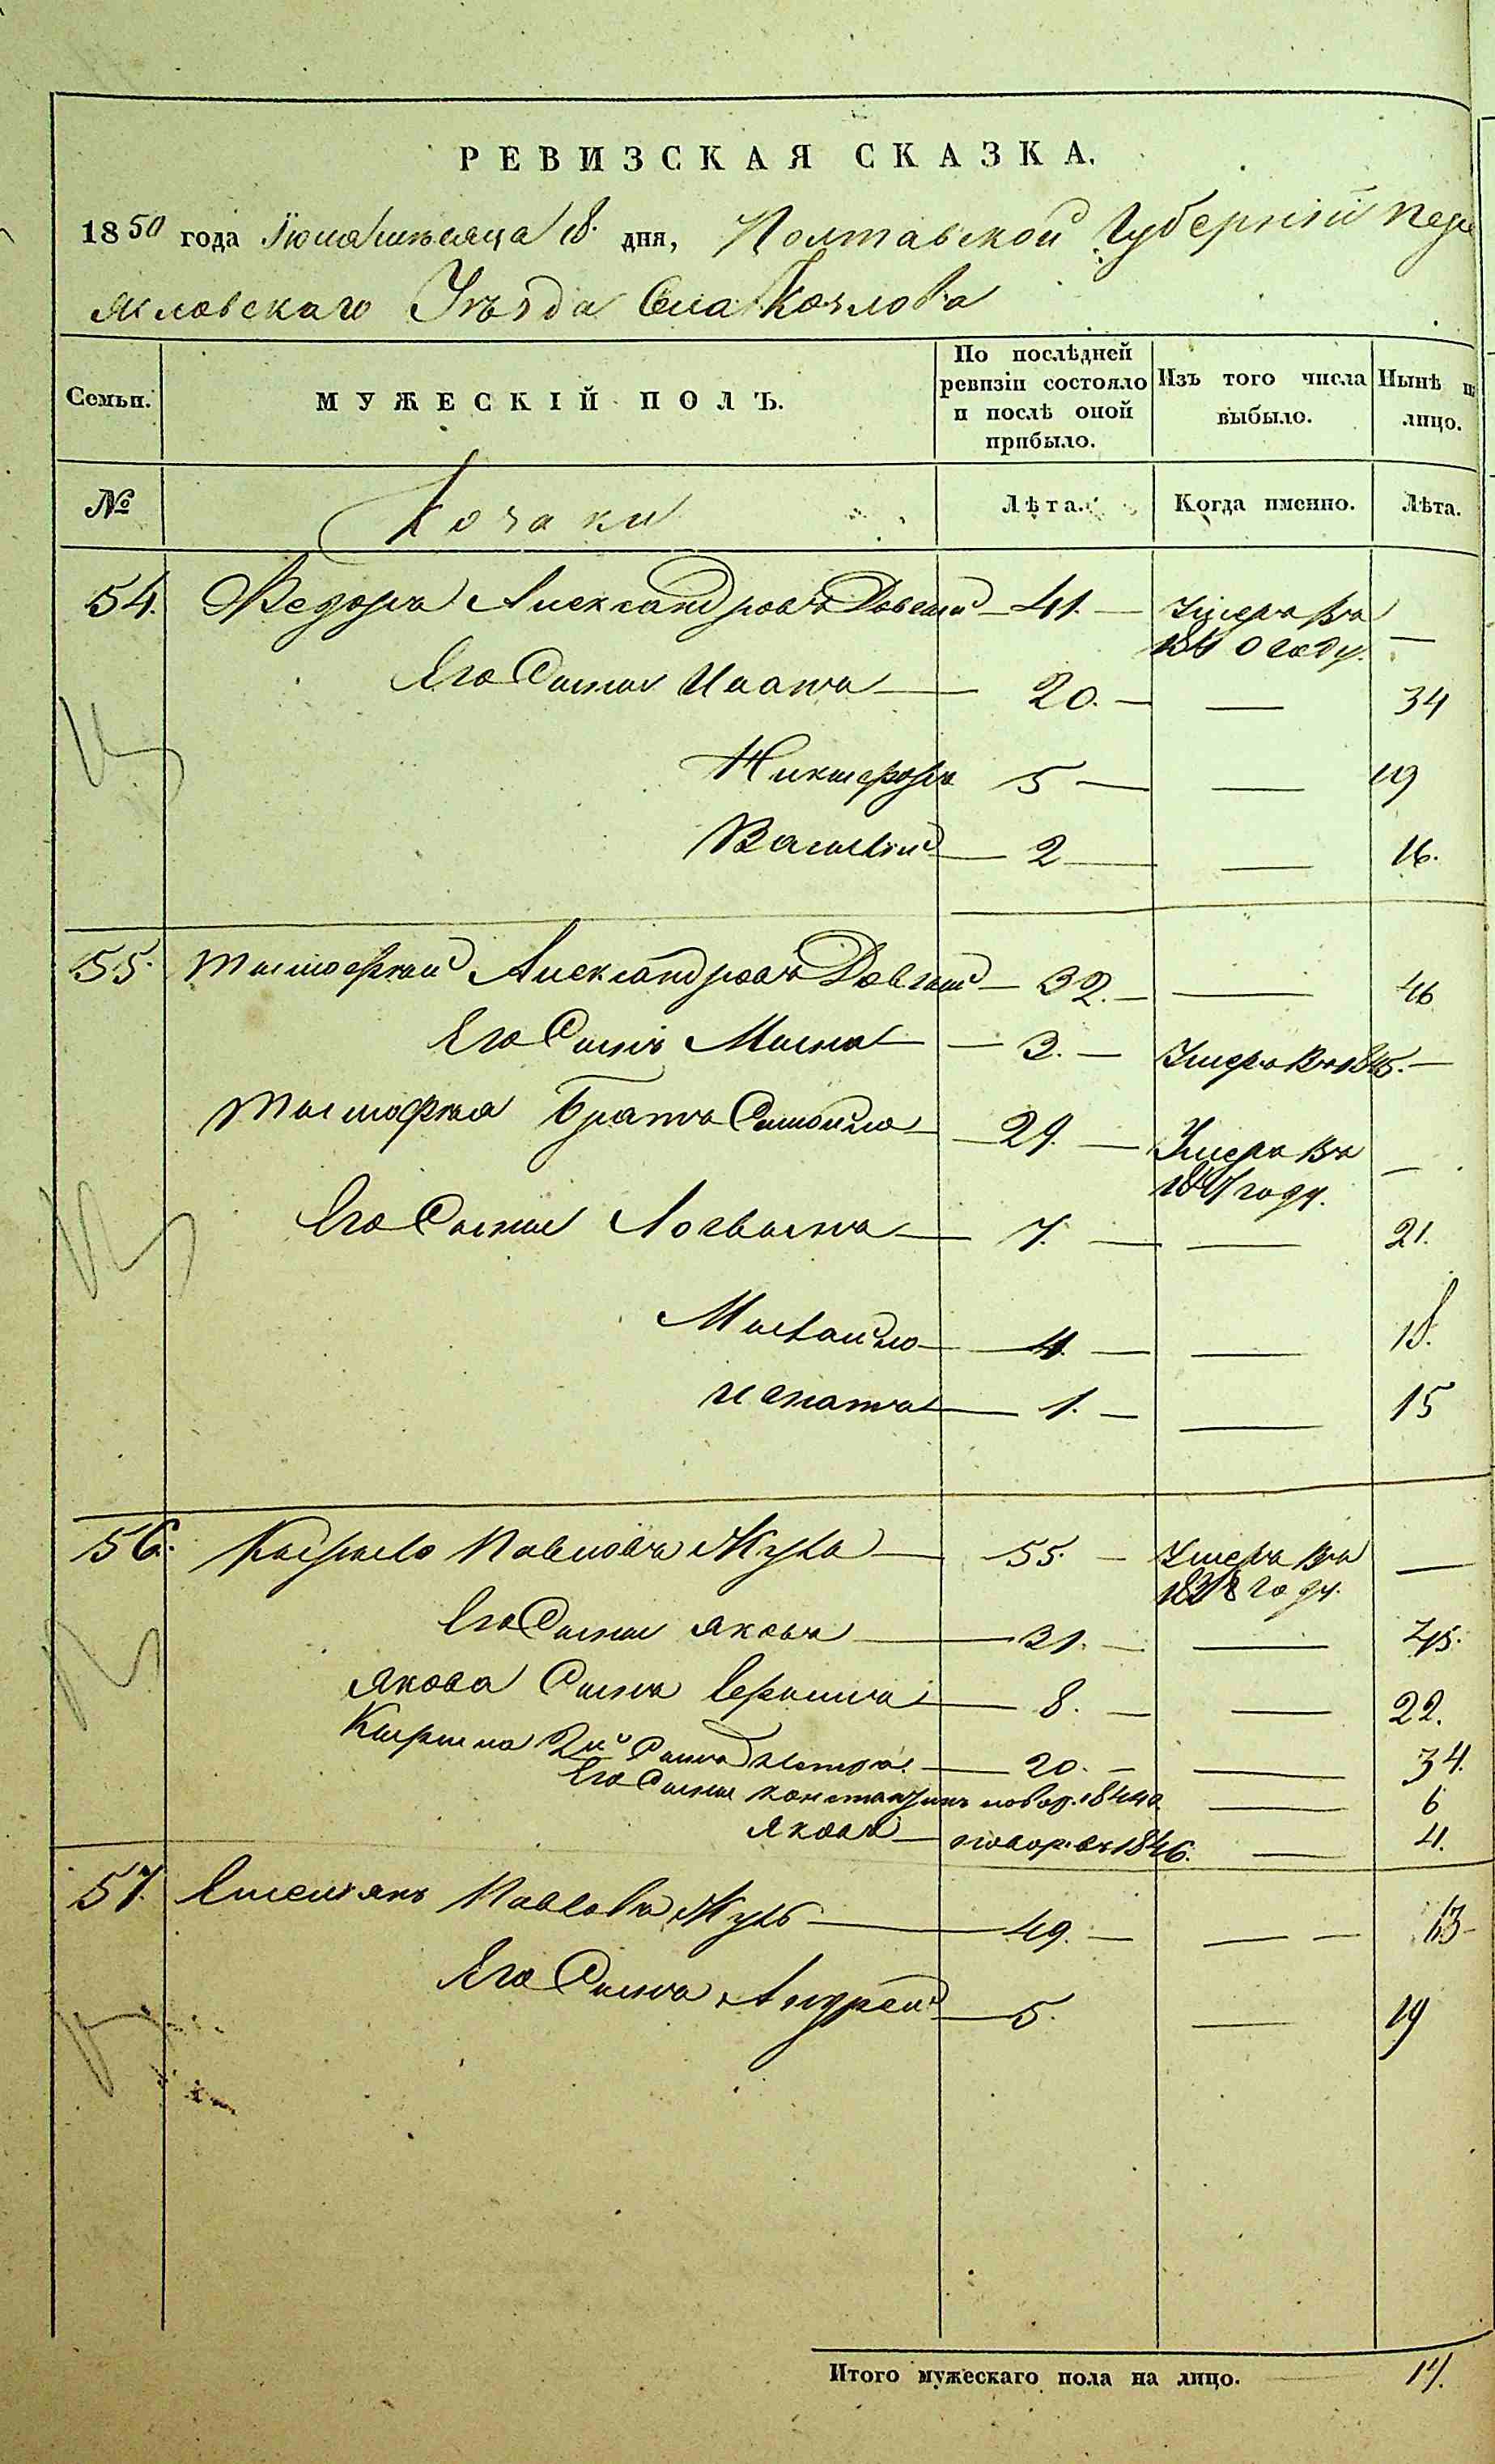 РЕВИЗСКАЯ СКАЗКА.
1850 года Іюня мѣсяца 18. дня, Полтавской Губерніи Пере
яславскаго Уѣзда Села Козлова
Семьи. МУЖЕСКІЙ ПОЛЪ. По послѣдней ревизіи состояло и послѣ оной прибыло. Изъ того числа выбыло. Нынѣ на лицо.
№ Козаки Лѣта. Когда именно. Лѣта.
54. Федоръ Александровъ Довгий — 41. — Умеръ въ 1840 году. —
Его Сыны Игнатъ — 20. — — 34
Никифоръ 5 — — 19
Василій — 2 — — 16.
55. Тимофѣй Александровъ Довгий — 32. — — 46
Его Сынъ Мина — 3. — Умеръ въ 1845. —
Тимофѣя Братъ Самойло — 29. — Умеръ въ 1841 году. —
Его Сыны Логвинъ — 7. — — 21.
Михайло — 4. — — 18.
Игнатъ — 1. — — 15
56. Кирило Павловъ Жукъ — 55. — Умеръ въ 1838 году. —
Его Сыны Яковъ — 31. — — 45.
Якова Сынъ Герасимъ — 8. — — 22.
Кирила 2й Сынъ Петръ. — 20. — — 34.
Его Сыны Константинъ новор. 1844 — 6
Яковъ — новор. въ 1846. — 4.
57. Емельянъ Павловъ Жукъ — 49. — — — 63 -
Его Сынъ Андрей — 5. — 19
Итого мужескаго пола на лицо. 14.